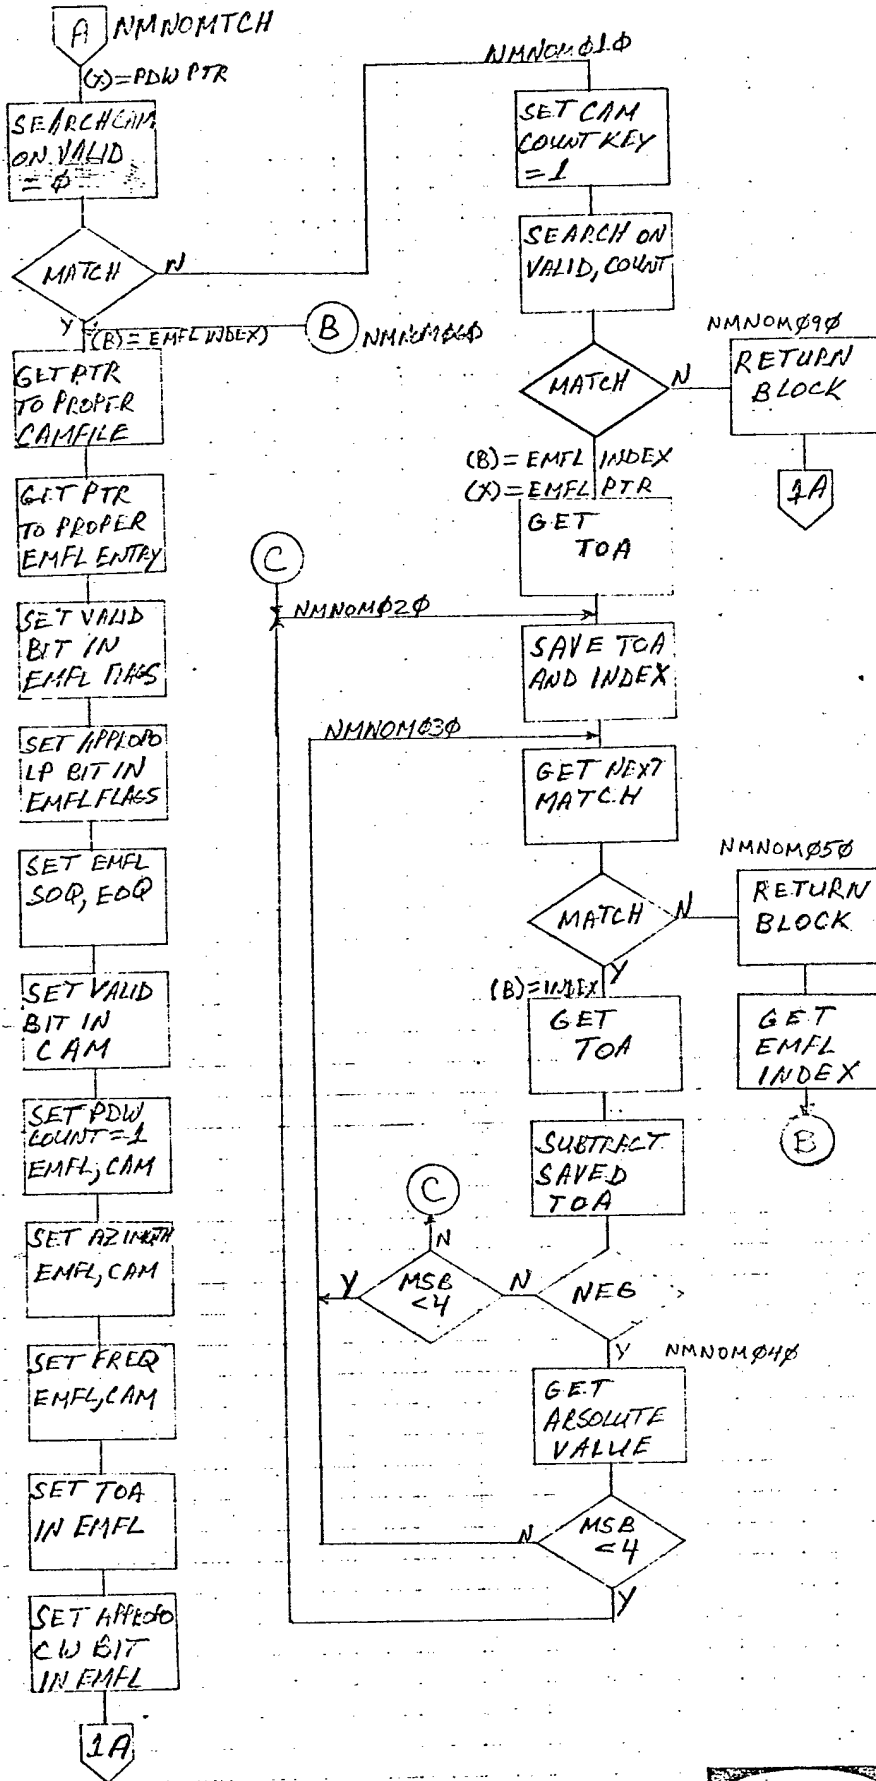 A NMNOMTCH
(X)=PDW PTR
SEARCH CAM
ON VALID
= φ
MATCH
N
Y
(B)=EMFL INDEX)
B
NMNOMφ6φ
GET PTR
TO PROPER
CAMFILE
GET PTR
TO PROPER
EMFL ENTRY
SET VALID
BIT IN
EMFL FLAGS
SET APPROPO
LP BIT IN
EMFL FLAGS
SET EMFL
SOQ, EOQ
SET VALID
BIT IN
CAM
SET PDW
COUNT=1
EMFL, CAM
SET AZIMUTH
EMFL, CAM
SET FREQ
EMFL, CAM
SET TOA
IN EMFL
SET APPROPO
CW BIT
IN EMFL
1A
NMNOMφ1φ
SET CAM
COUNT KEY
=1
SEARCH ON
VALID, COUNT
MATCH
N
NMNOMφ9φ
RETURN
BLOCK
1A
(B)=EMFL INDEX
(X)=EMFL PTR
GET
TOA
C
NMNOMφ2φ
SAVE TOA
AND INDEX
NMNOMφ3φ
GET NEXT
MATCH
MATCH
N
Y
NMNOMφ5φ
RETURN
BLOCK
GET
EMFL
INDEX
B
(B)=INDEX
GET
TOA
SUBTRACT
SAVED
TOA
NEG
N
Y
MSB
<4
Y
N
C
NMNOMφ4φ
GET
ABSOLUTE
VALUE
MSB
<4
N
Y